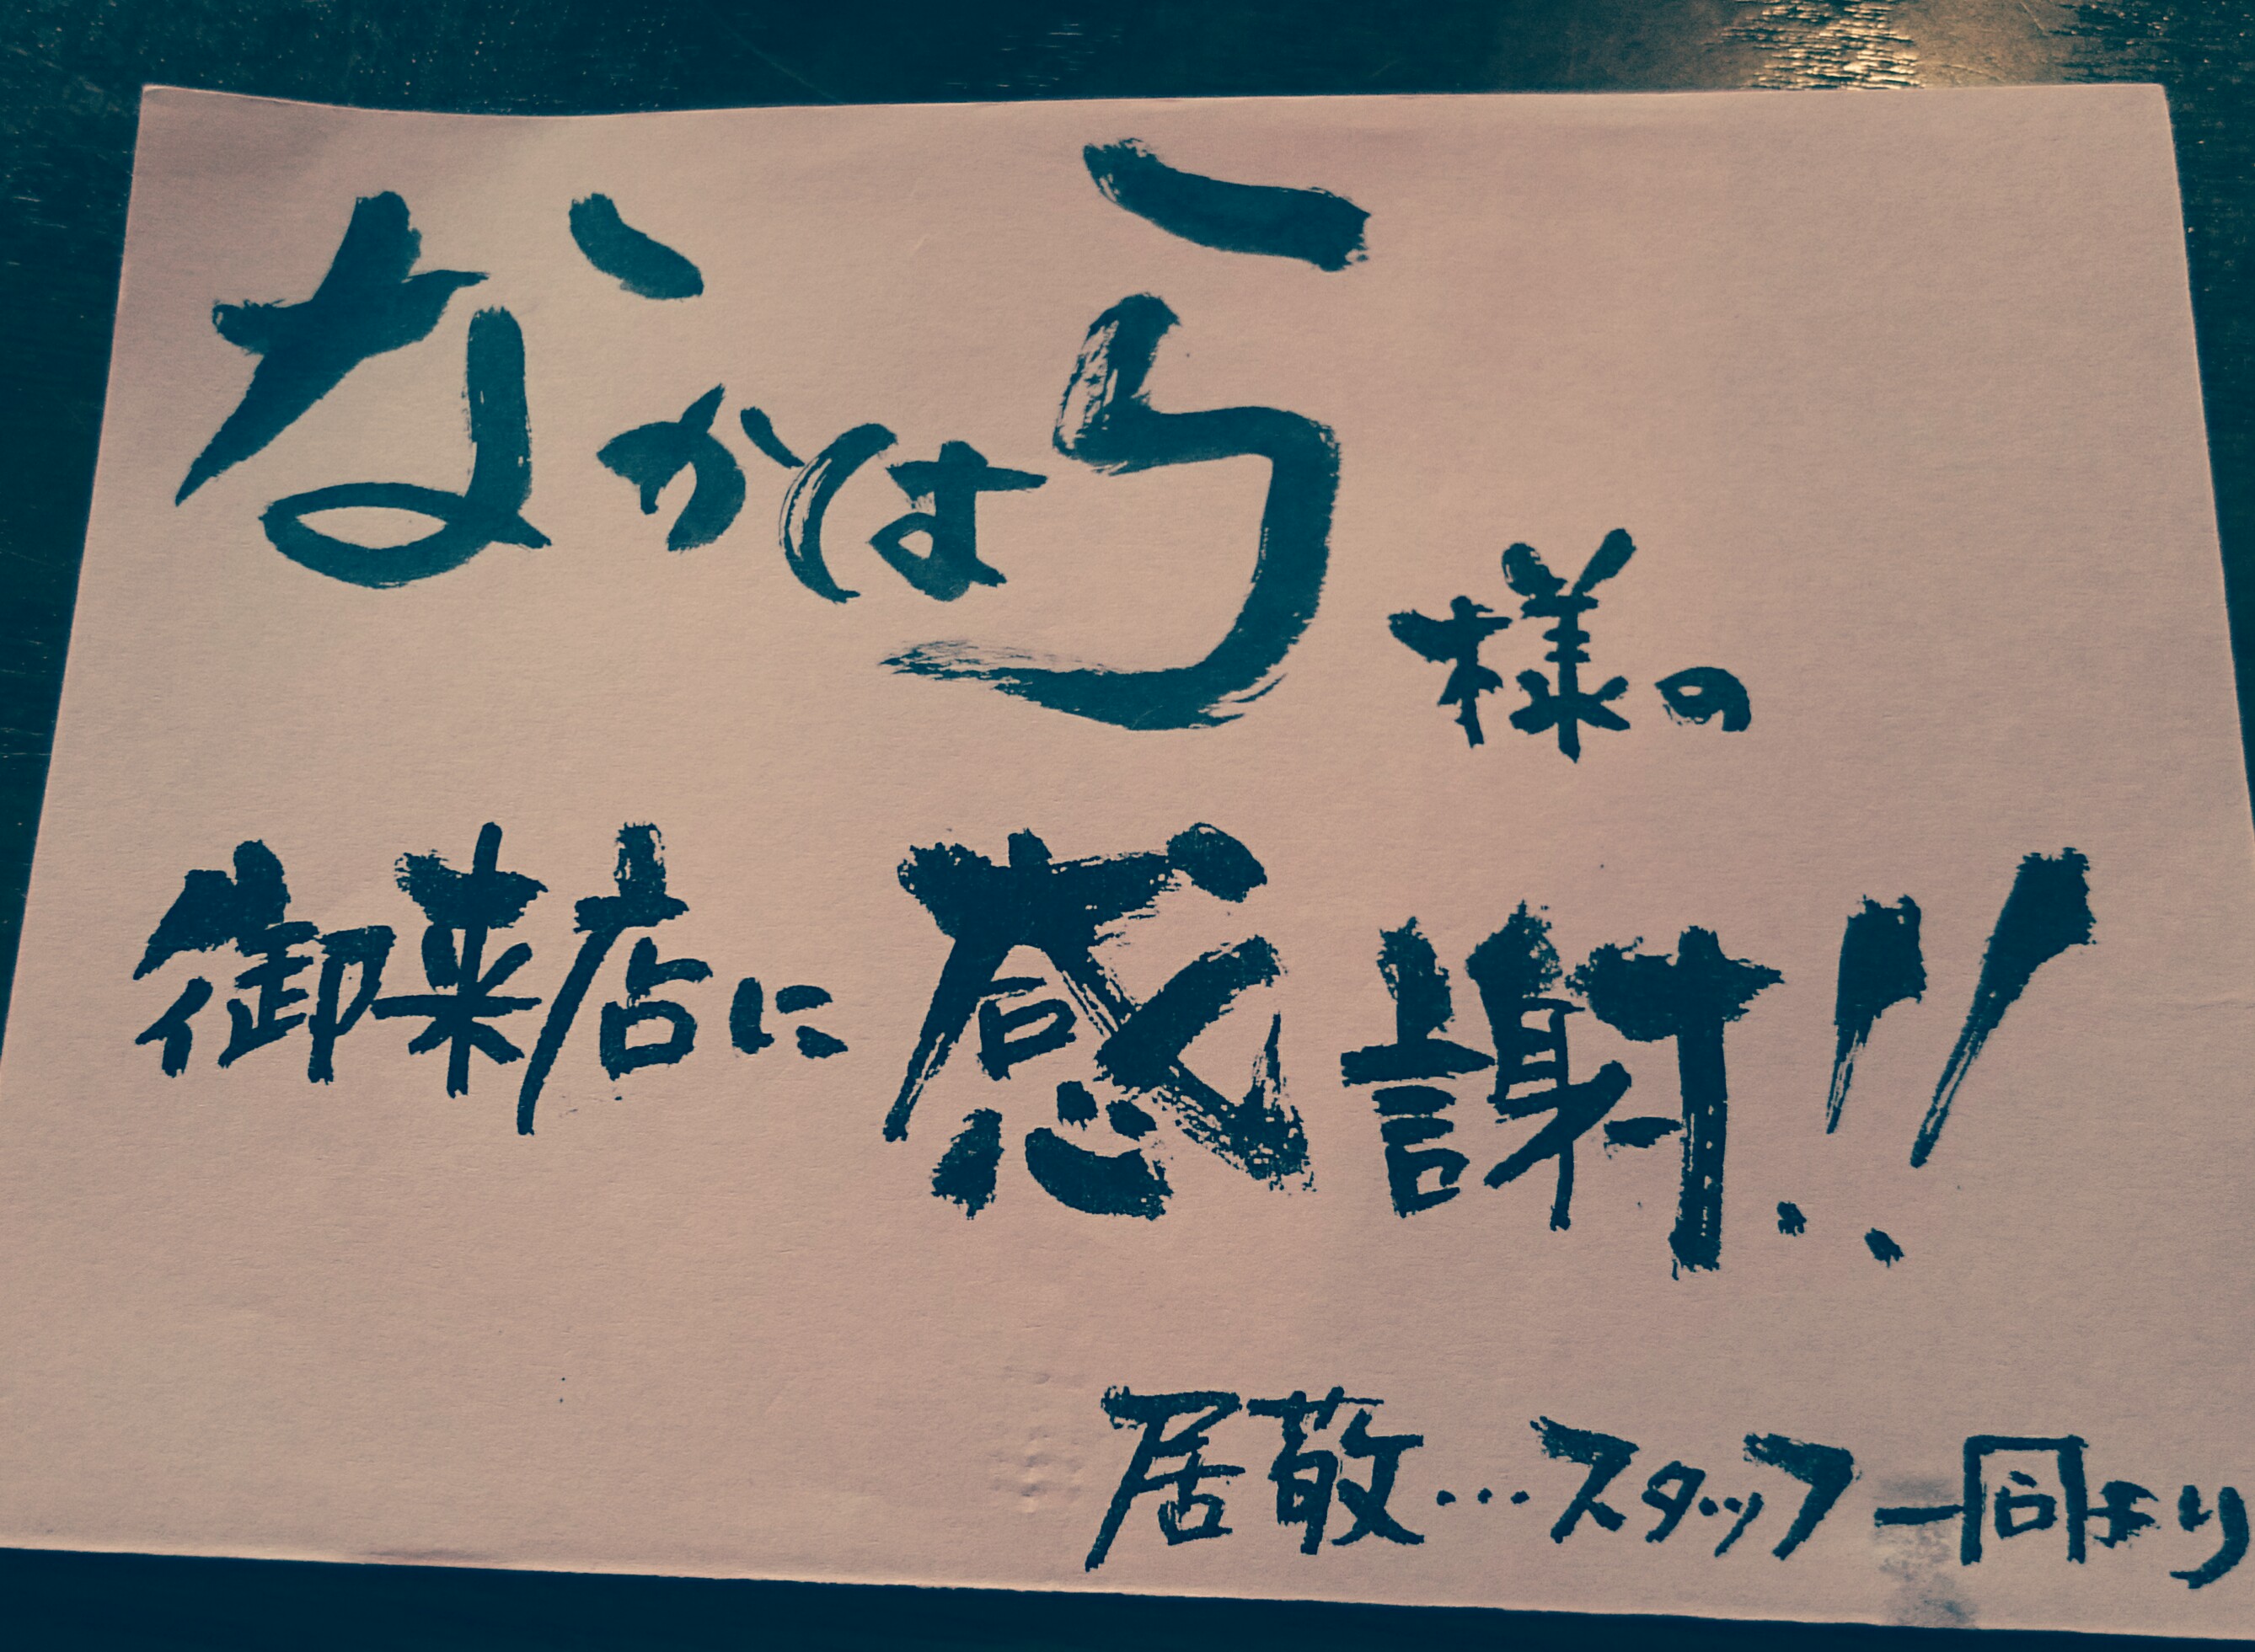 なかはら様の
御来店に感謝!!
居敬…スタッフ一同より